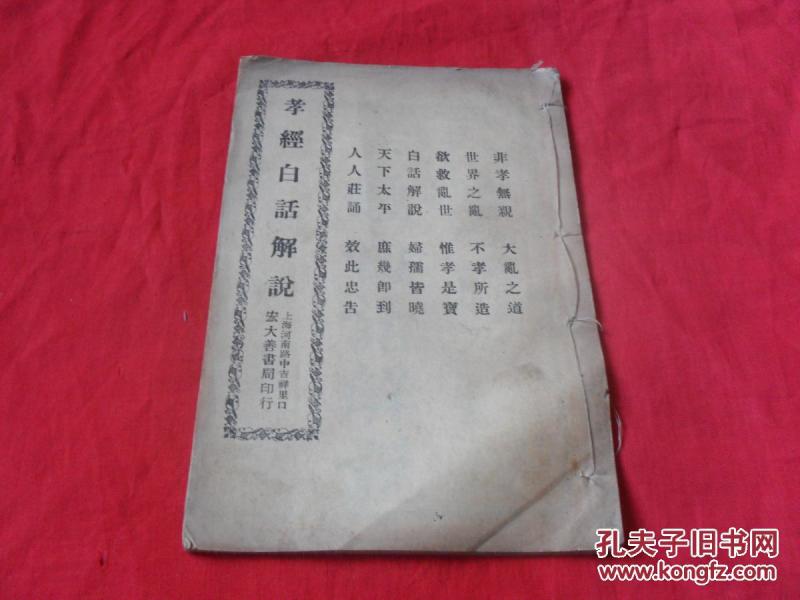 非孝無親 大亂之道
世界之亂 不孝所造
欲救亂世 惟孝是寶
白話解說 婦孺皆曉
天下太平 庶幾卽到
人人莊誦 效此忠告
孝經白話解說
上海河南路中吉祥里口
宏大善書局印行
孔夫子旧书网
www.kongfz.com